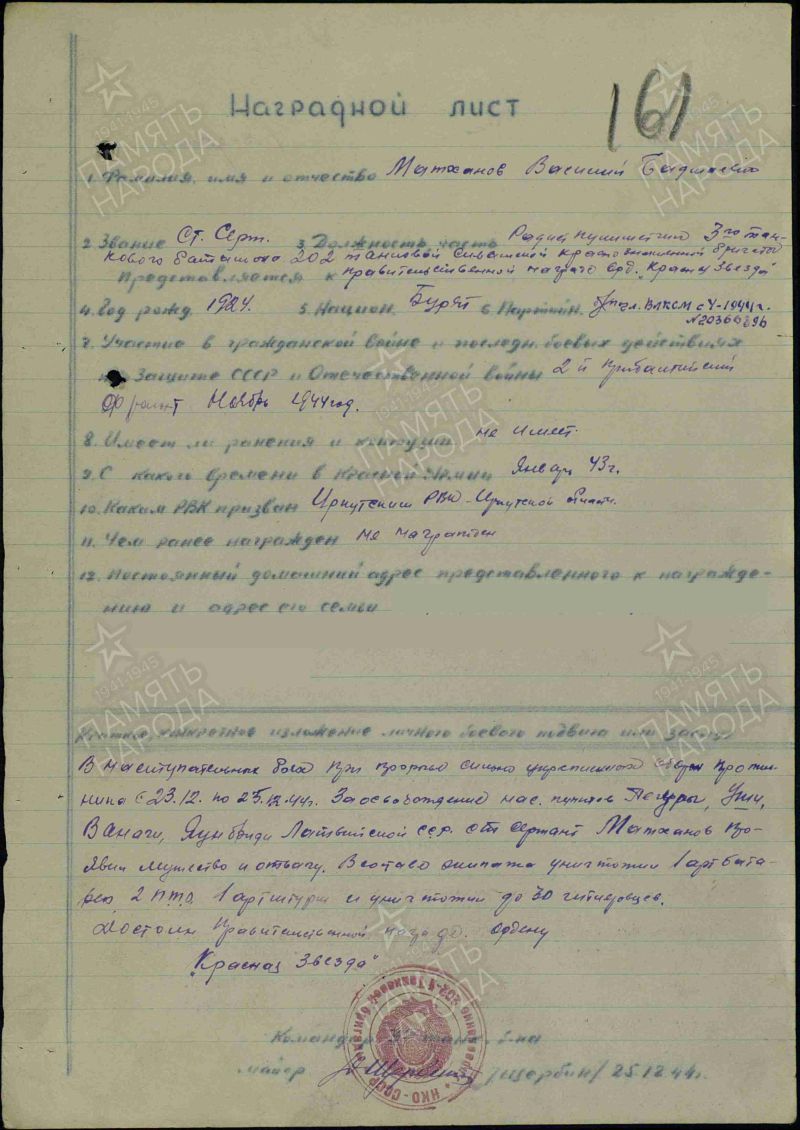 161
Наградной лист
1. Фамилия, имя и отчество Матханов Василий
2. Звание Ст. Серж. 3. Должность, часть Радист пулеметчик 3го тан-
кового батальона 202 танковой Сивашской Краснознаменной бригады
Представляется к правительственной награде орд. „Красная Звезда"
4. Год рожд. 1924. 5. Национ. Бурят 6. Партийн. чл. ВЛКСМ с V-1944г.
7. Участие в гражданской войне и последн. боевых действиях
по Защите СССР и Отечественной войны 2й Прибалтийский
Фронт Ноябрь 1944 год.
8. Имеет ли ранения и контузии не имеет
9. С какого времени в Красной Армии Январь 43 г.
10. Каким РВК призван Иркутским РВК Иркутской области.
11. Чем ранее награжден не награжден
12. Постоянный домашний адрес представленного к награжде-
нию и адрес его семьи
Краткое, конкретное изложение личного боевого подвига или заслуг
В наступательных боях при прорыве сильно укрепленной обороны против-
ника с 23.12. по 25.12.44г. За освобождение нас. пунктов
Ванаги, Латвийской ССР. ст сержант Матханов про-
явил мужество и отвагу. В составе экипажа уничтожил 1 арт бата-
рею 2 П.Т.О. и уничтожил до 30 гитлеровцев.
Достоин Правительственной награде ордену
„Красная Звезда"
Командир танк. б-на
майор /Щербин/ 25.12.44г.
НКО-СССР
202-й Танковой бригады
1941-1945
ПАМЯТЬ
НАРОДА